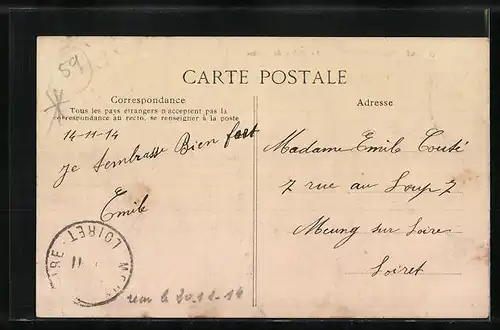 59
CARTE POSTALE
Correspondance
Tous les pays étrangers n'acceptent pas la
correspondance au recto, se renseigner à la poste
14-11-14
je tembrasse Bien fort
Emile
Adresse
Madame Emile Couté
7 rue au Loup 7
Meung sur Loire
Loiret
LOIRET
11
le 20-11-14